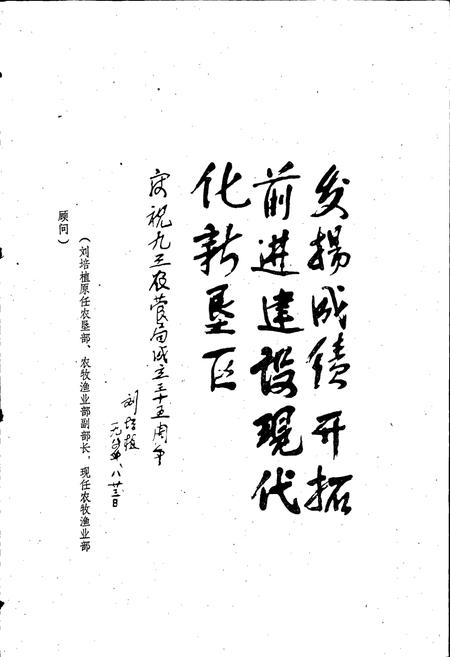 发扬成绩开拓
前进建设现代
化新垦区
庆祝九三农管局成立三十五周年
刘培植
八·廿三日
（刘培植原任农垦部、农牧渔业部副部长，现任农牧渔业部
顾问）